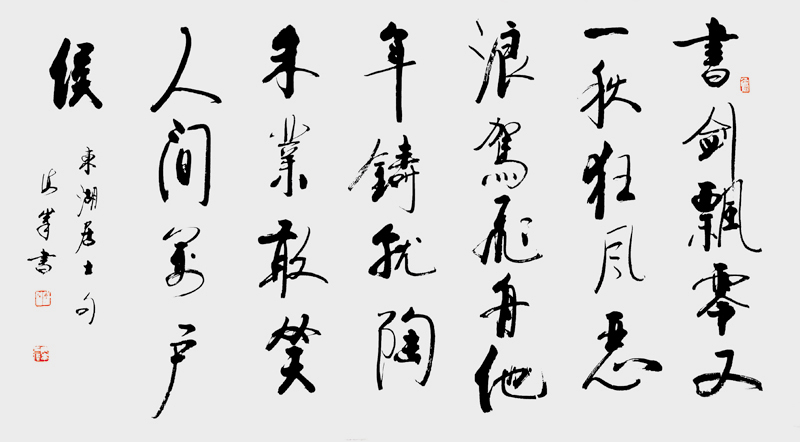 書劍飄零又
一秋狂风惡
浪駕飛舟他
年鑄就陶
朱業敢笑
人间萬戶
侯
東湖居士句
峯書